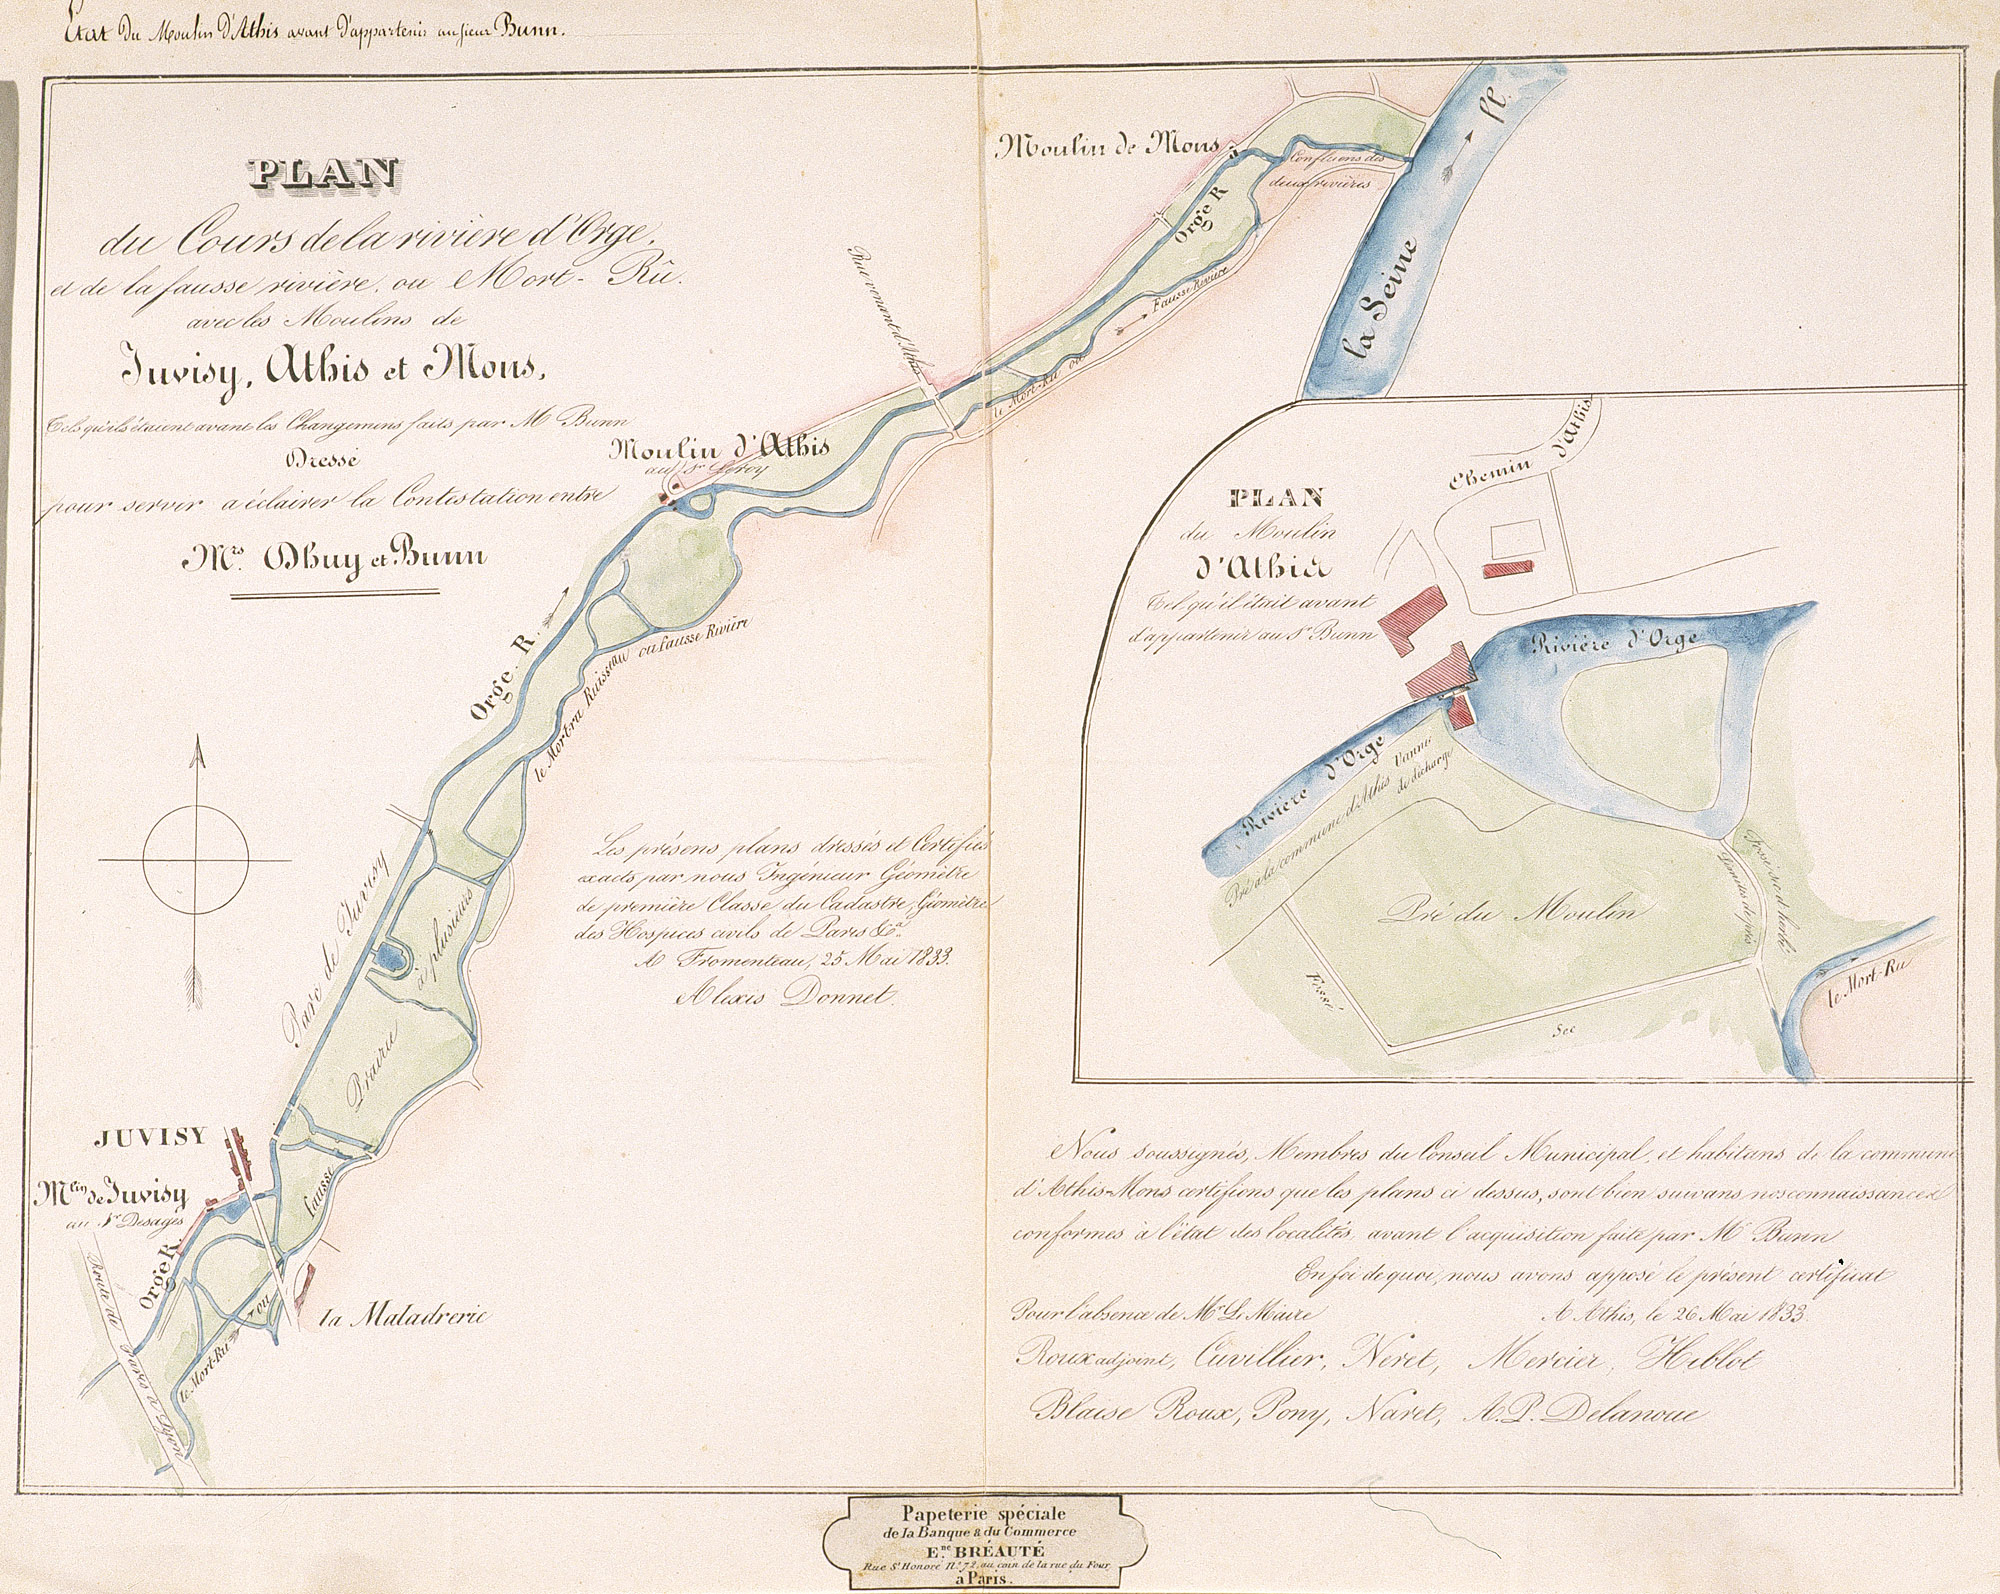 Etat du Moulin d'Athis avant d'appartenir au sieur Bunn.
PLAN
du Cours de la rivière d'Orge,
et de la fausse rivière, ou Mort-Rû.
avec les Moulins de
Juvisy, Athis et Mons,
Tels qu'ils étaient avant les Changemens faits par Mr Bunn
Dressé
pour servir a éclairer la Contestation entre
Mrs. Dhuy et Bunn
Moulin de Mons
Confluens des
deux rivières
Orge R
Fausse Rivière
le Mort-Ru ou
Rue venant d'Athis
la Seine
fl.
Moulin d'Athis
au Sr Leroy
Orge R.
le Mortru Ruisseau ou fausse Rivière
Parc de Juvisy
Prairie
à plusieurs
JUVISY
Mlin de Juvisy
au Sr Desages
Orge R.
fausse
le Mort-Ru
ou
la Maladrerie
Route de Paris à Lyon
Les présens plans dressés et Certifiés
exacts par nous Ingénieur Géomètre
de première Classe du Cadastre, Géomètre
des Hospices civils de Paris &a.
A Fromenteau, 25 Mai 1833.
Alexis Donnet.
PLAN
du Moulin
d'Athis
Tel qu'il était avant
d'appartenir au Sr Bunn
Chemin d'Athis
Rivière d'Orge
Rivière d'Orge
Vanne
de décharge
Pré a la commune d'Athis
Pré du Moulin
Limites de prés
Fossé
Sec
le Mort-Ru
Nous soussignés, Membres du Conseil Municipal, et habitans de la commune
d'Athis-Mons certifions que les plans ci dessus, sont bien suivans nos connaissances
conformes à l'état des localités, avant l'acquisition faite par Mr Bunn
En foi de quoi, nous avons apposé le présent certificat
Pour l'absence de Mr Le Maire
A Athis, le 26 Mai 1833.
Roux adjoint, Cuvillier, Néret, Mercier, Hiblot
Blaise Roux, Pony, Naret, A.P. Delanoue
Papeterie spéciale
de la Banque & du Commerce
Ene. BRÉAUTÉ
Rue St Honoré No. 72, au coin de la rue du Four,
à Paris.